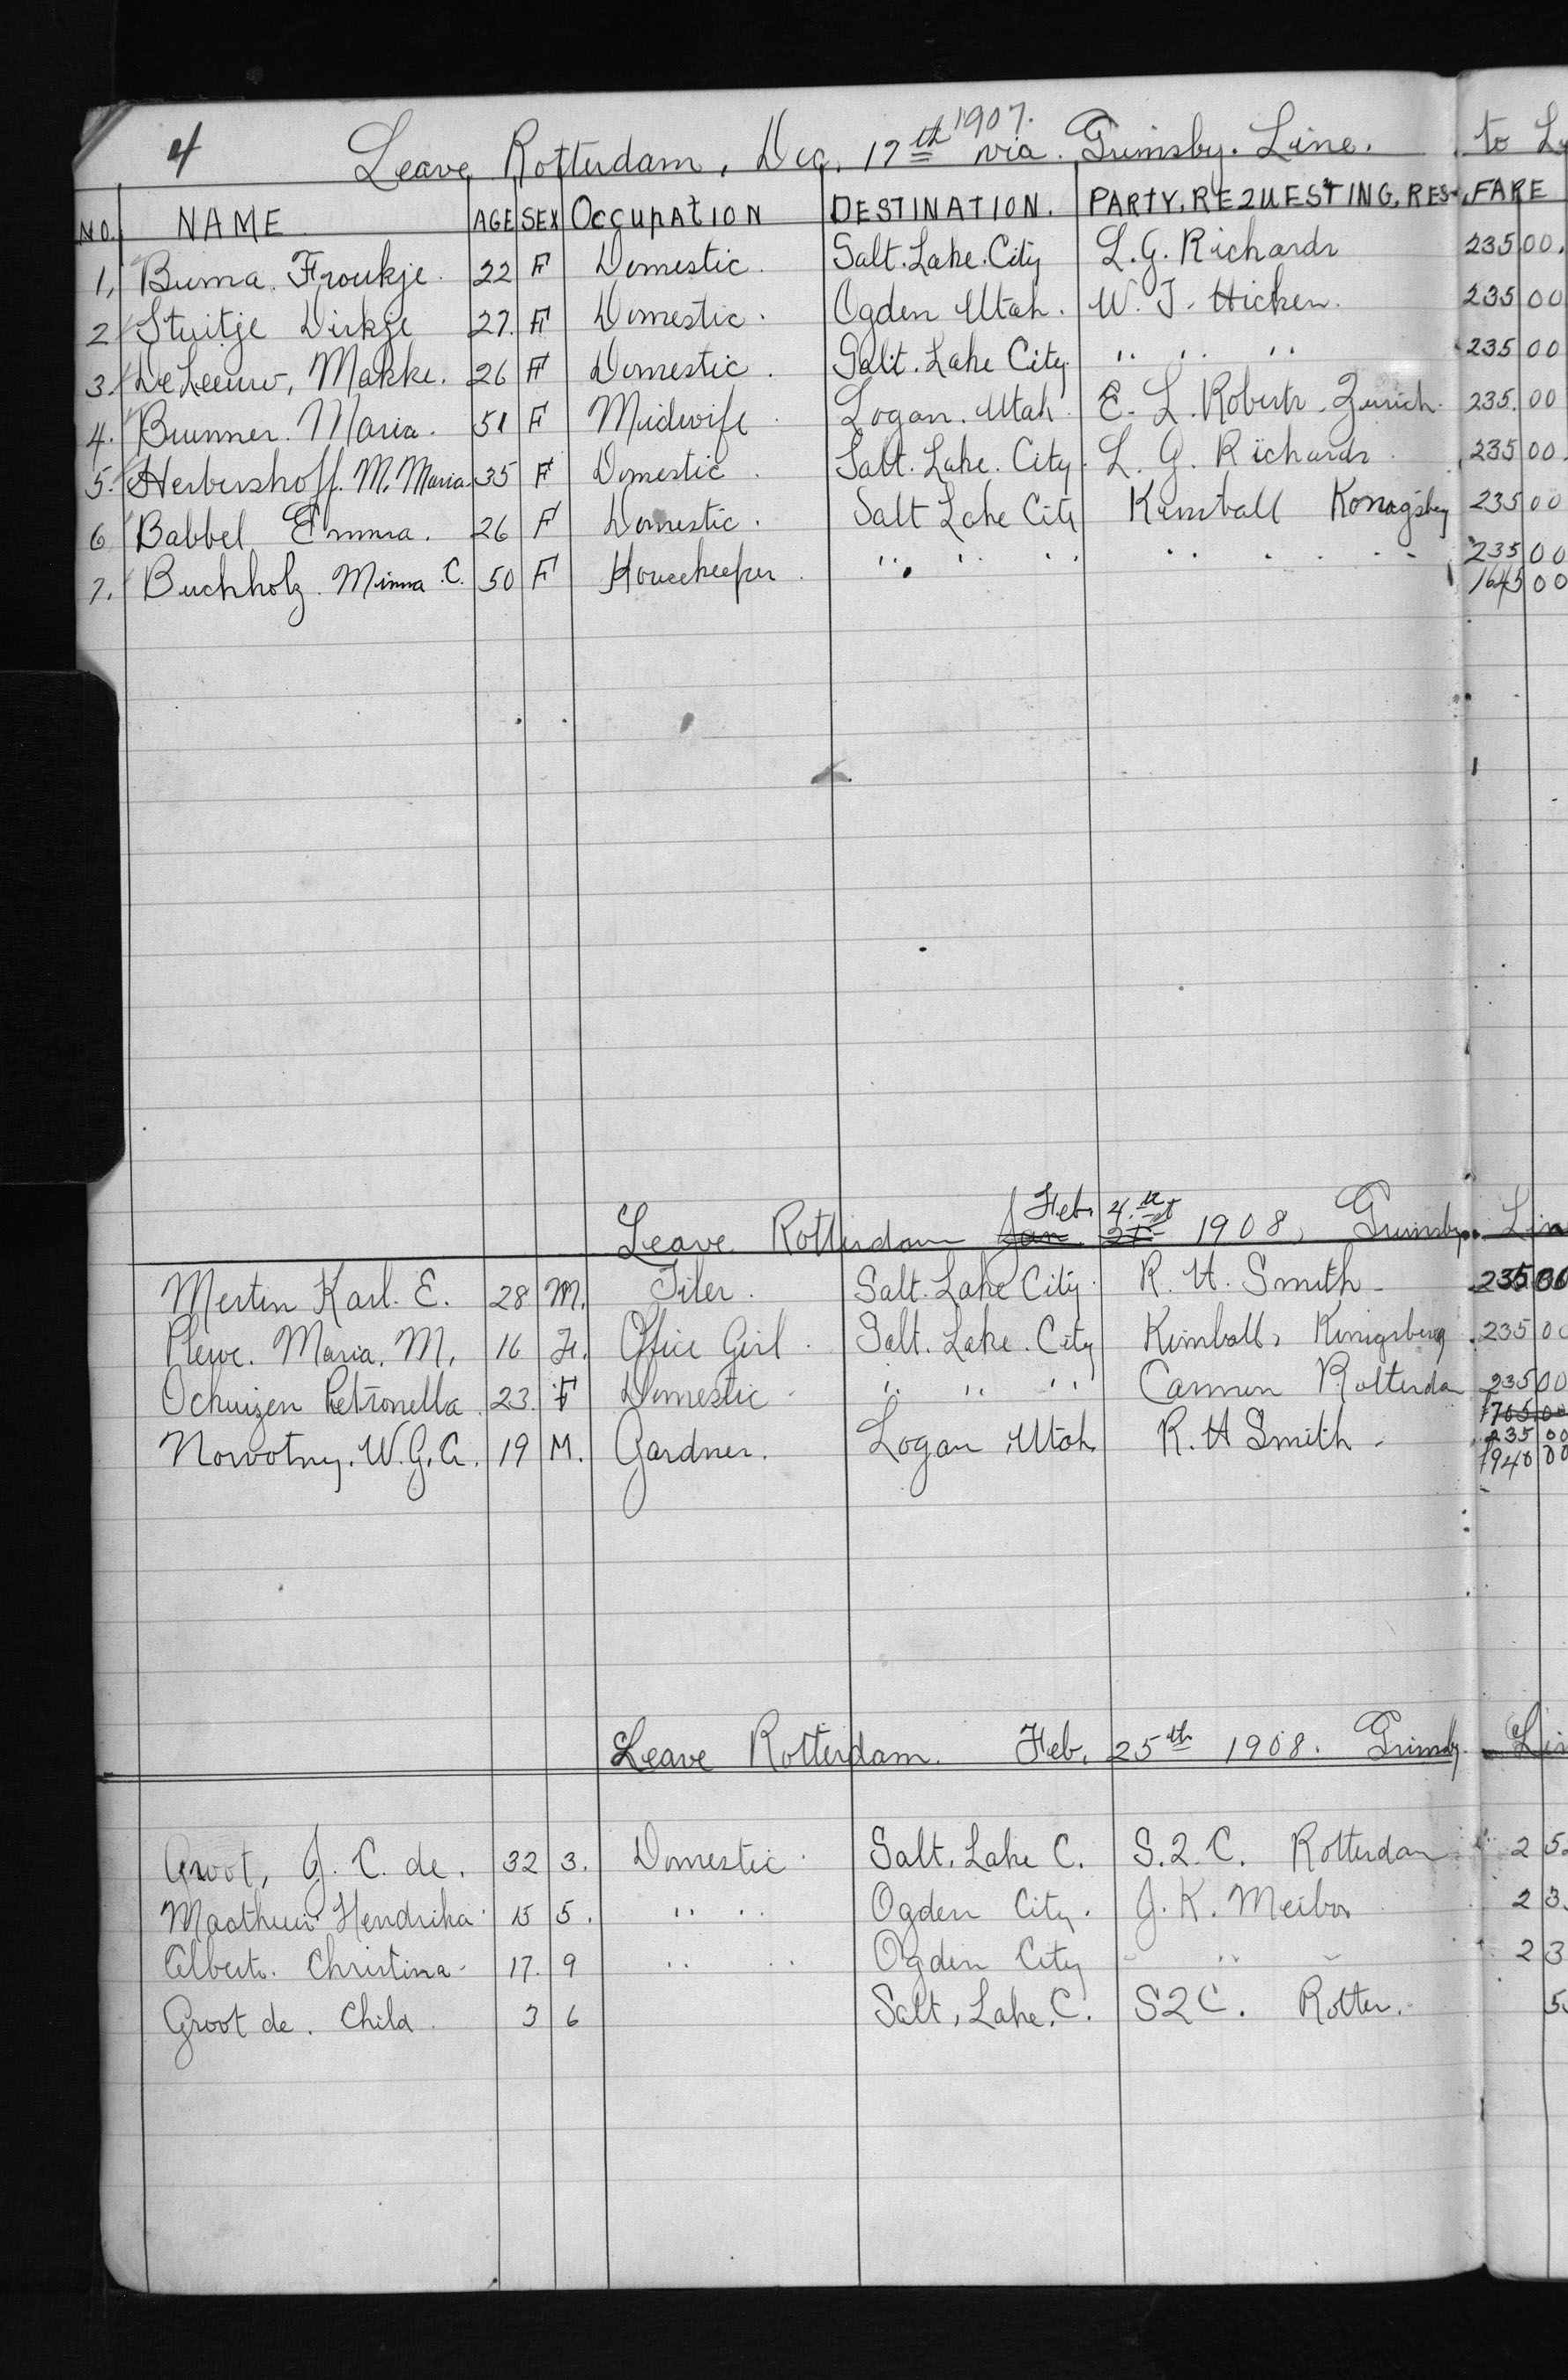 4 Leave Rotterdam, Dec. 17th 1907. via. Grimsby. Line. to
NO. NAME. AGE SEX OCCUPATION DESTINATION. PARTY, REQUESTING, RES. FARE
1, Buma. Froukje. 22 F Domestic. Salt. Lake. City L. G. Richards 235 00.
2 Stuitje Dirkje 27. F Domestic. Ogden Utah. W. J. Hicken. 235 00
3. De Leeuw, Makke. 26 F Domestic. Salt. Lake City " " " 235 00
4. Brunner. Maria. 51 F Midwife. Logan. Utah. E. L. Roberts. Zurich. 235. 00
5. Herbershoff. M. Maria. 35 F Domestic. Salt. Lake. City. L. G. Richards. 235 00.
6 Babbel Emma. 26 F Domestic. Salt Lake City Kimball Konagsbey 235 00
7. Buchholz. Minna. C. 50 F Housekeeper. " " " " " " 235 00
1645 00
Leave Rotterdam Jan 21st Feb. 4.th 1908, Grimsby. Lin
Mertin Karl. E. 28 M. Tiler. Salt. Lake City. R. H. Smith. 235 00
Plewe. Maria. M. 16 F. Office Girl. Salt. Lake. City Kimball, Kinigsberg 235 00
Ochuizen Petronella. 23. F Domestic. " " " Cannun Rotterda 235 00
1705 00
Nowotny. W. G. A. 19 M. Gardner. Logan, Utah R. H Smith. 235 00
1940 00
Leave Rotterdam. Feb. 25th 1908. Grimsby. Lin
Groot, J. C. de. 32 3. Domestic. Salt. Lake C. S. 2. C. Rotterdam 2 5
Maathuis Hendrika. 15 5. " " Ogden City. J. K. Meibos 2 3
Alberts. Christina. 17. 9 " " Ogden City " " " 2 3
Groot de. Child. 3 6 Salt, Lake. C. S2C. Rotter. 5